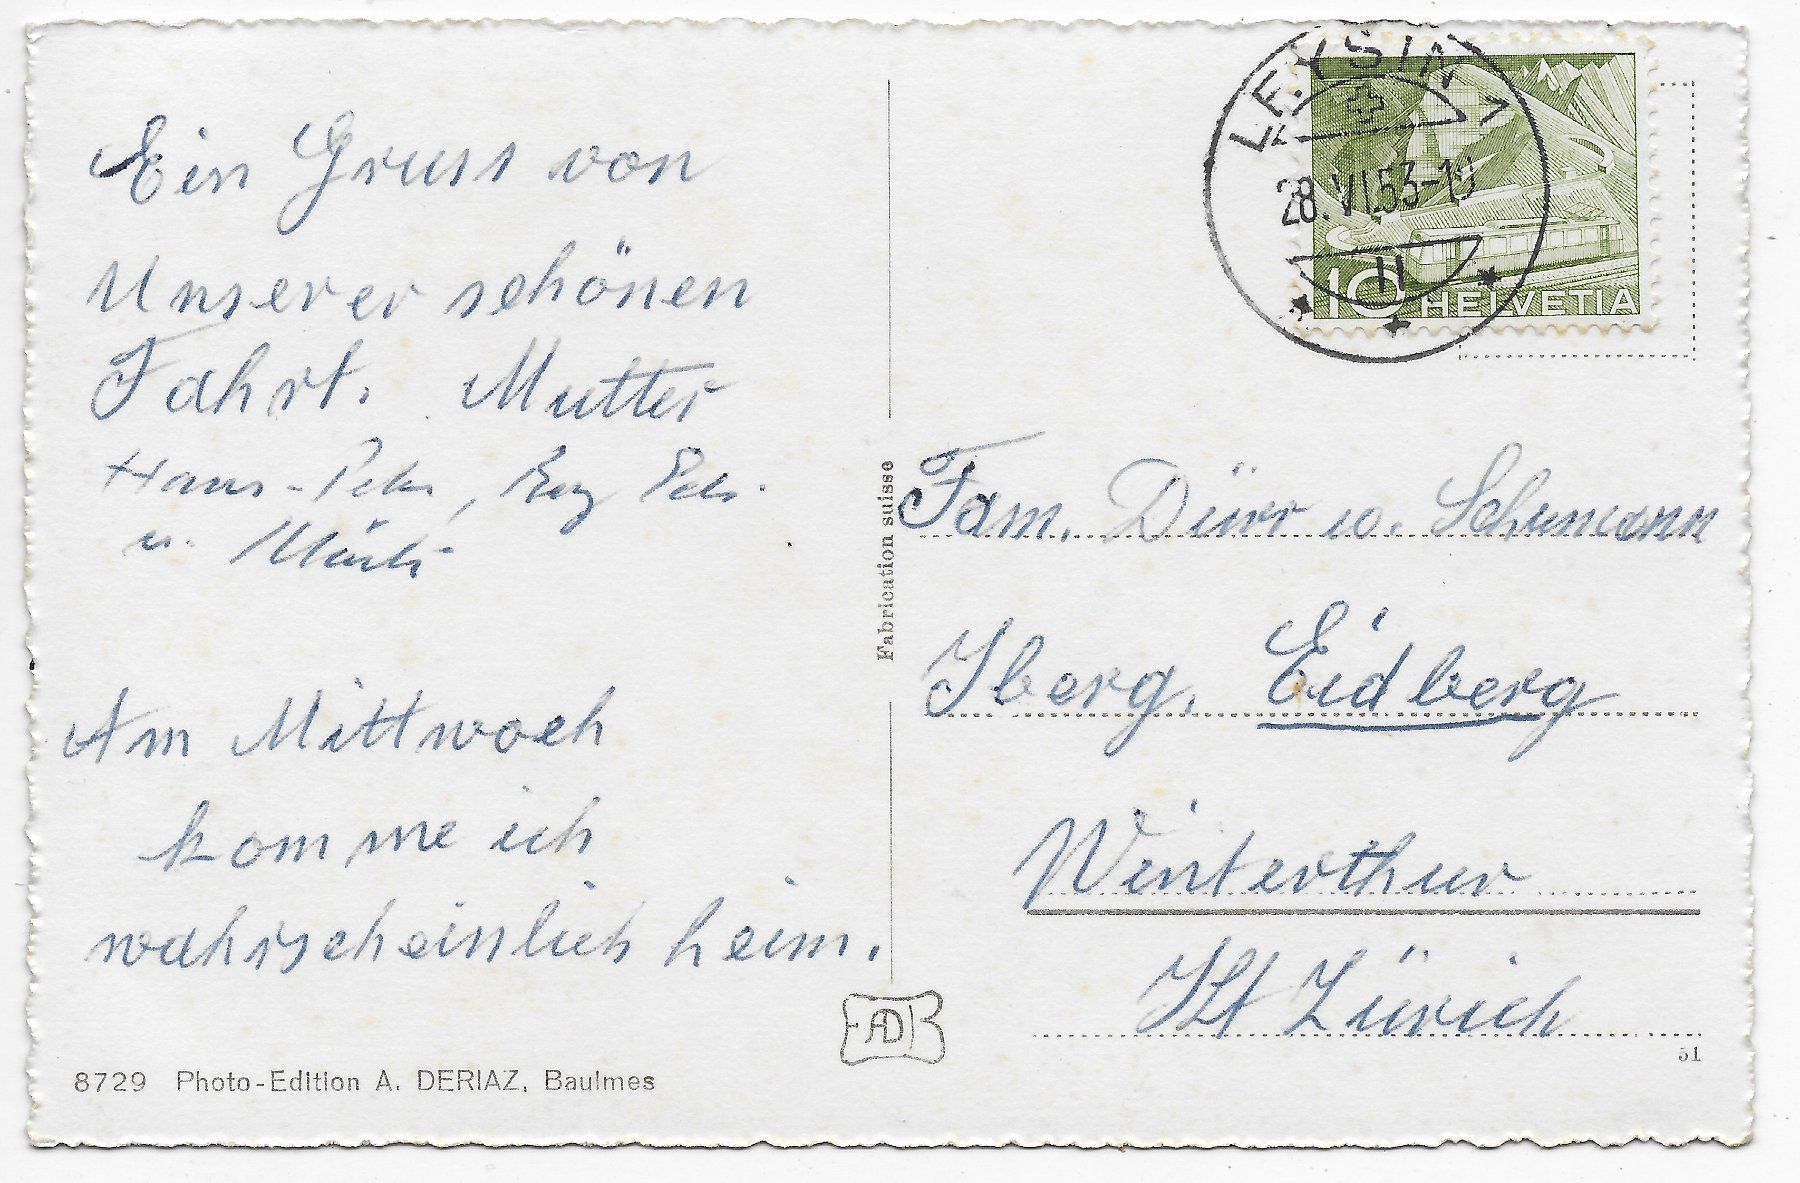 Ein Gruss von
Unserer schönen
Fahrt. Mutter
Hans-Peter,
u.
Am Mittwoch
komme ich
wahrscheinlich heim.
8729 Photo-Edition A. DERIAZ, Baulmes
Fabrication suisse
LEYSIN 1
28.VI.53-10
II
10 HELVETIA
Fam. Dürr u. Schumann
Iberg, Eidberg
Winterthur
Kt Zürich
EADB
51